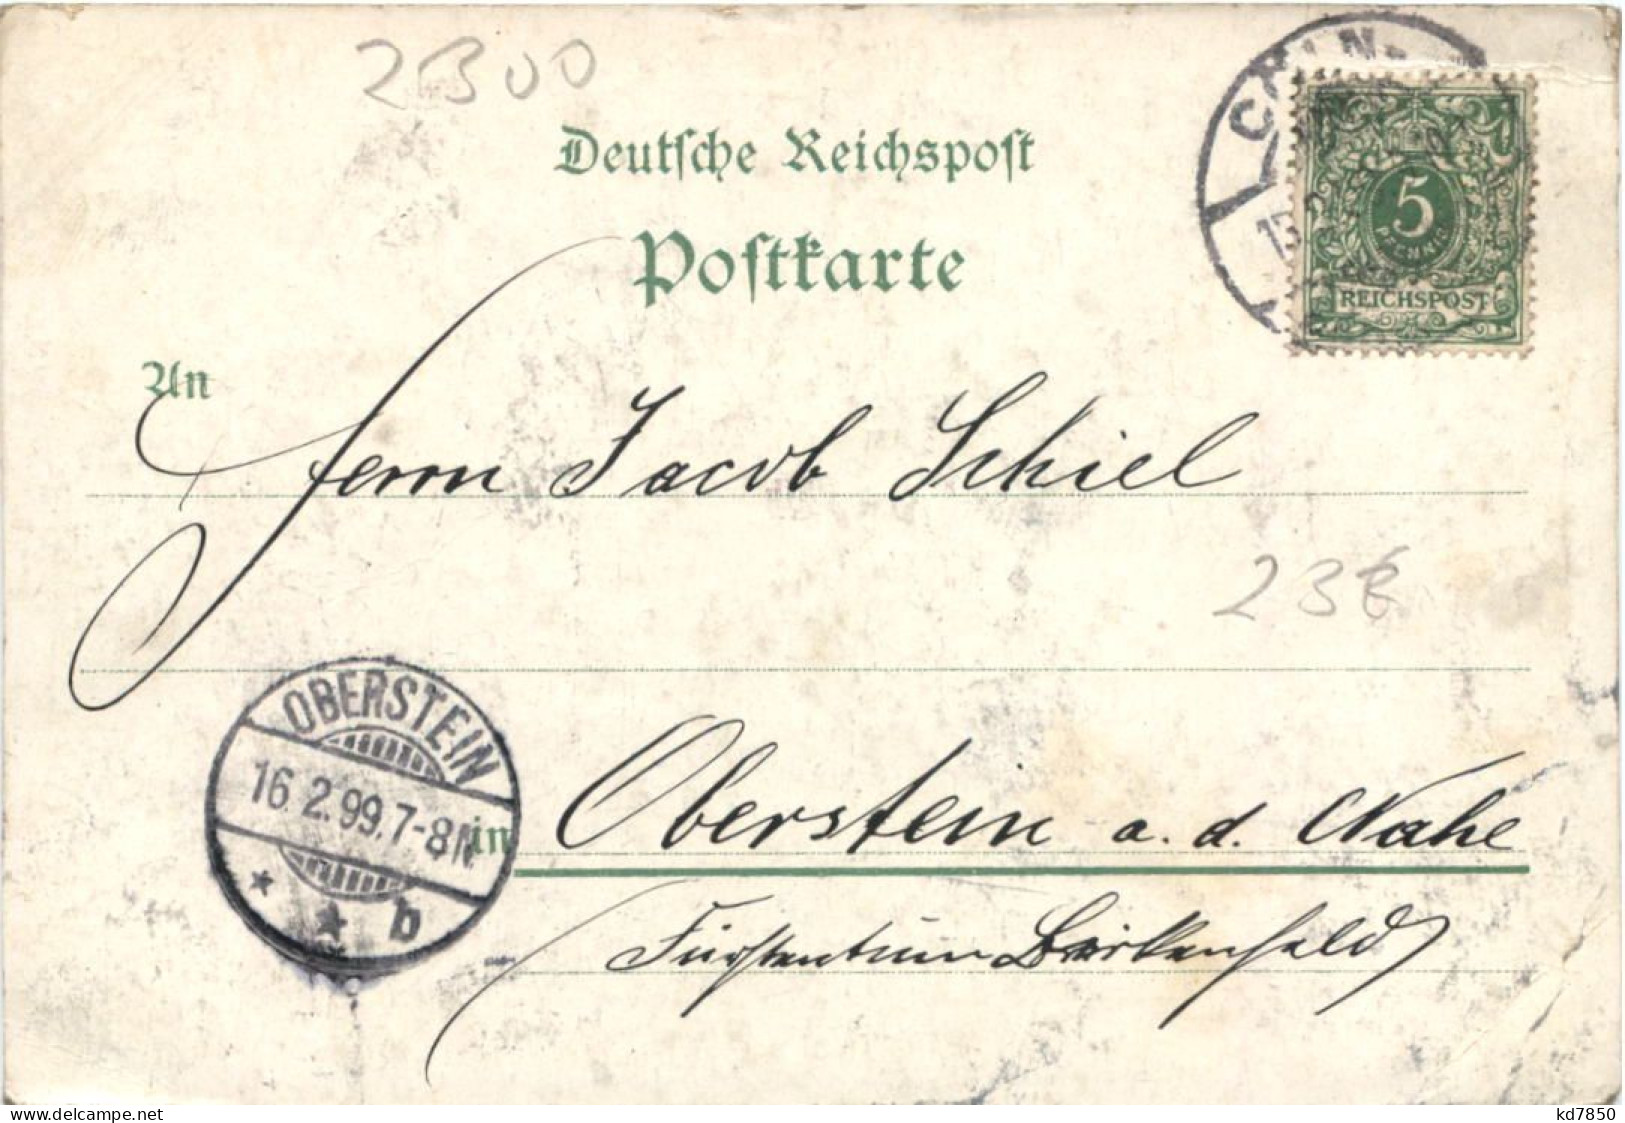 2300
CÖLN
Deutsche Reichspost
5
PFENNIG
REICHSPOST
Postkarte
An
Herrn Jacob Schiel
23€
OBERSTEIN
16.2.99.7-8N
* * b
in
Oberstein a. d. Nahe
(Fürstentum Birkenfeld)
www.delcampe.net
kd7850